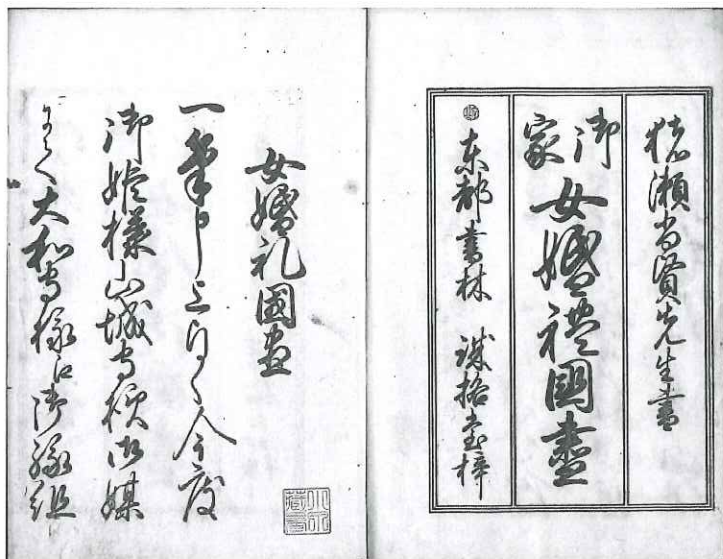 猪瀬尚賢先生書
御家
女婚禮國盡
東都書林
梓
女婚礼國盡
一筆申上まいらせ候今度
御姫様山城守様御媒
にて大和守様江御縁組